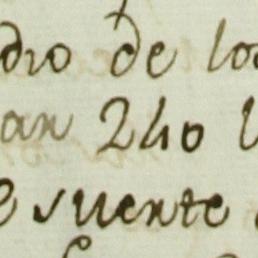 dio de los
an 240 l
e suerte